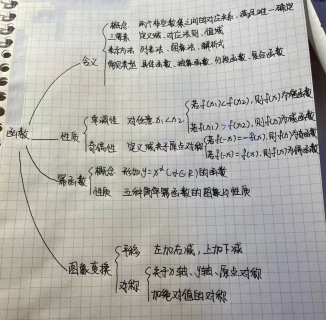 函数
含义
概念 两个非空数集之间的对应关系, 满足唯一确定
三要素 定义域、对应法则、值域
表示方法 列表法、图象法、解析式
常见类型 具体函数、抽象函数、分段函数、复合函数
性质
单调性 对任意x1<x2
若f(x1)<f(x2), 则f(x)为增函数
若f(x1)>f(x2), 则f(x)为减函数
奇偶性 定义域关于原点对称
若f(-x)=-f(x), 则f(x)为奇函数
若f(-x)=f(x), 则f(x)为偶函数
幂函数
概念 形如y=x^α(α∈R)的函数
性质 五个简单幂函数的图象与性质
图象变换
平移 左加右减, 上加下减
对称
关于x轴、y轴、原点对称
加绝对值的对称